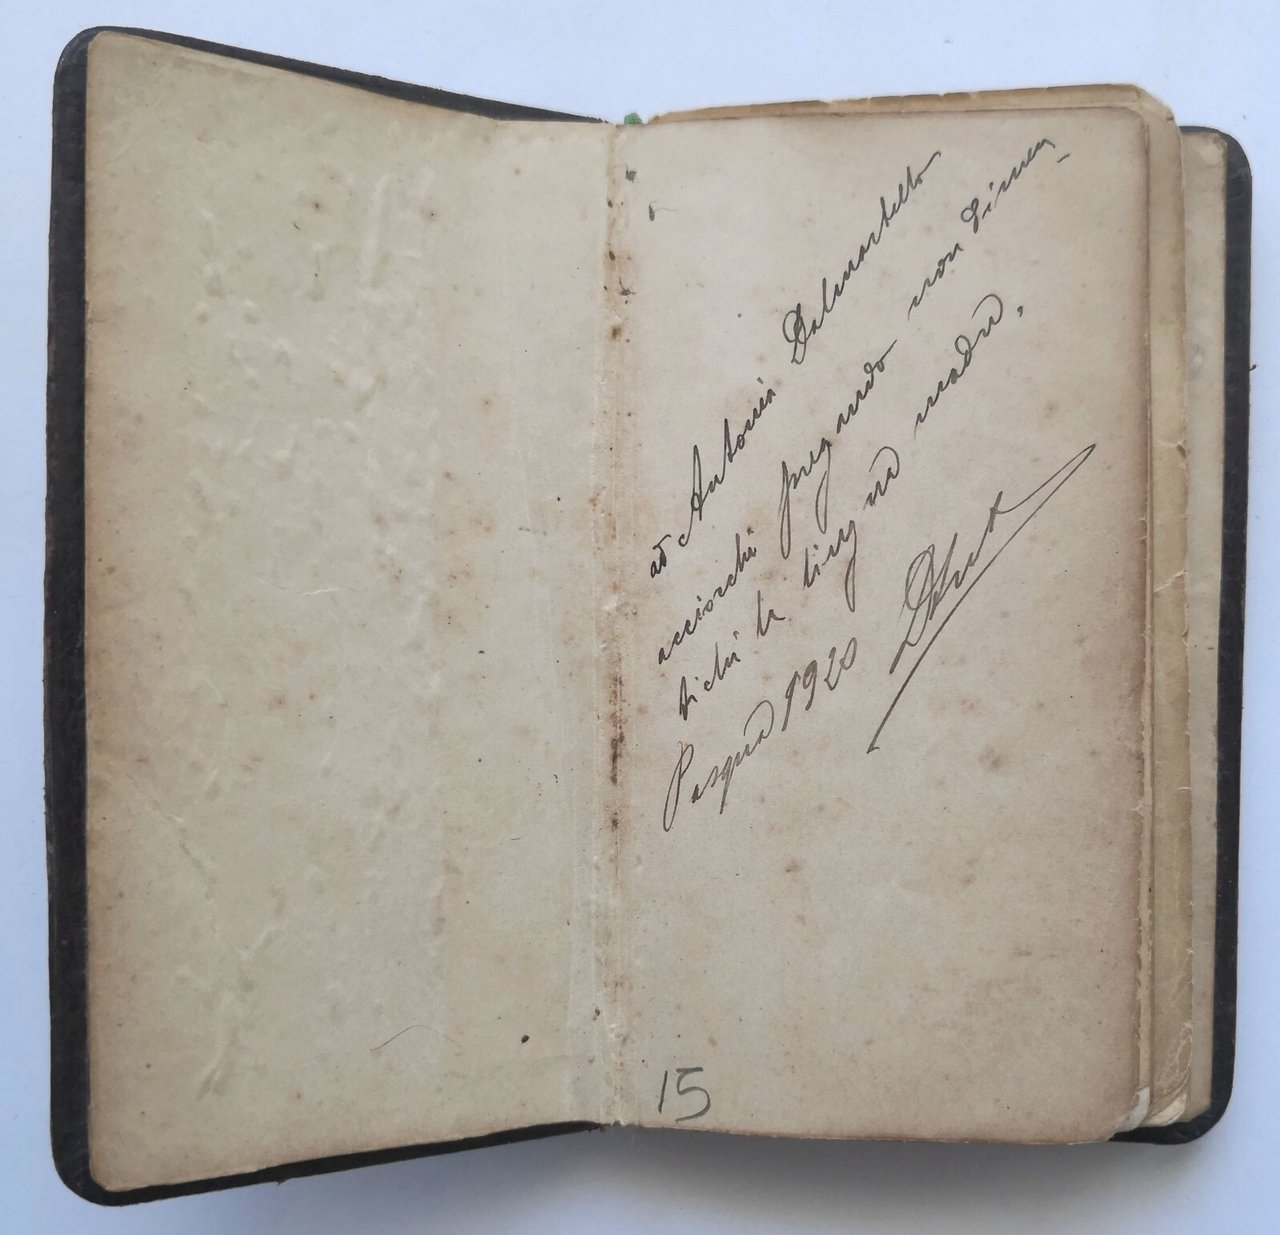 ad Antonia Dalmartello
acciocchè pregando non dimen-
tichi la lingua madre.
Pasqua 1920
15